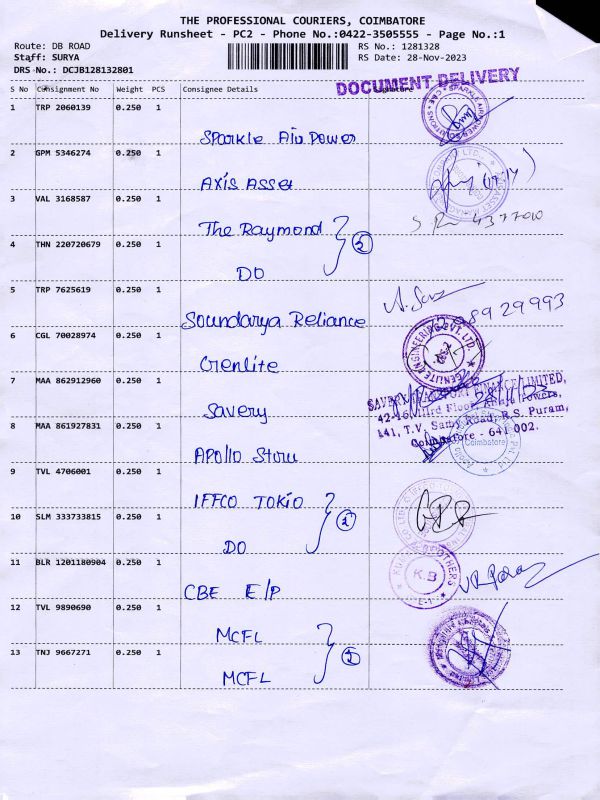 THE PROFESSIONAL COURIERS, COIMBATORE
Delivery Runsheet - PC2 - Phone No.:0422-3505555 - Page No.:1
Route: DB ROAD
RS No.: 1281328
Staff: SURYA
RS Date: 28-Nov-2023
DRS No.: DCJB128132801
DOCUMENT DELIVERY
S No Consignment No Weight PCS Consignee Details Signature
1 TRP 2060139 0.250 1
Sparkle Air Power
2 GPM 5346274 0.250 1
Axis Asset
3 VAL 3168587 0.250 1
The Raymond
4377200
4 THN 220720679 0.250 1
DO
2
5 TRP 7625619 0.250 1
Soundarya Reliance
8929993
6 CGL 70028974 0.250 1
Grenlite
GRENLITE ENGINEERING PVT. LTD.
7 MAA 862912960 0.250 1
Savery
42-46, Third Floor,
141, T.V. Samy Road, R.S. Puram,
Coimbatore - 641 002.
8 MAA 861927831 0.250 1
Apollo
Coimbatore
9 TVL 4706001 0.250 1
IFFCO TOKIO
10 SLM 333733815 0.250 1
DO
2
11 BLR 1201180904 0.250 1
CBE E/P
BROTHERS
K.B
E-1
12 TVL 9890690 0.250 1
MCFL
13 TNJ 9667271 0.250 1
MCFL